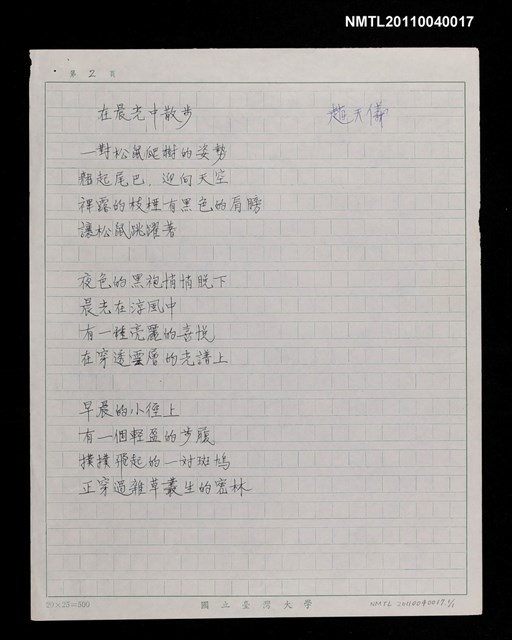 NMTL20110040017
第 2 頁
在晨光中散步 趙天儀
一對松鼠爬樹的姿勢
翹起尾巴、迎向天空
裸露的枝椏有黑色的肩膀
讓松鼠跳躍著
夜色的黑袍悄悄脫下
晨光在涼風中
有一種亮麗的喜悅
在穿透雲層的光譜上
早晨的小徑上
有一個輕盈的步履
撲撲飛起的一对斑鳩
正穿過雜草叢生的密林
20×25=500 國立臺灣大學 NMTL 20110040017 1/1